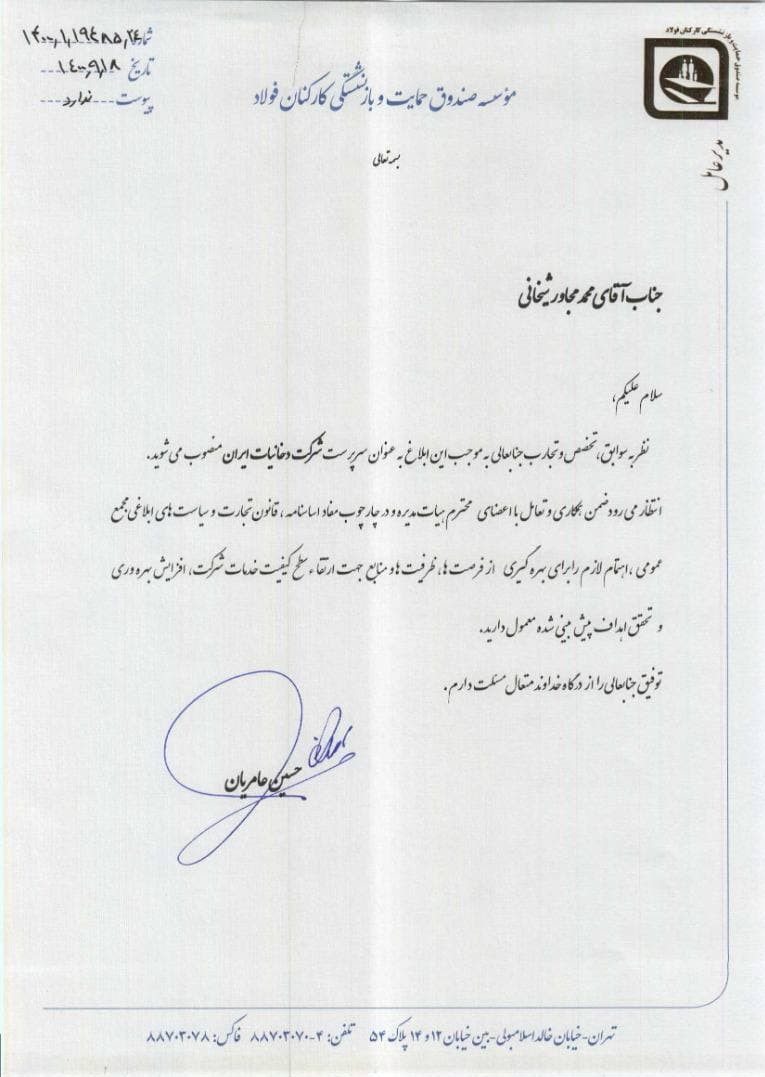 موسسه صندوق حمایت و بازنشستگی کارکنان فولاد
شماره
تاریخ ۱۴۰۰٫۹٫۱۸
پیوست ندارد
مؤسسه صندوق حمایت و بازنشستگی کارکنان فولاد
مدیرعامل
بسمه تعالی
جناب آقای محمد مجاور شیخانی
سلام علیکم،
نظر به سوابق، تخصص و تجارب جنابعالی به موجب این ابلاغ به عنوان سرپرست شرکت دخانیات ایران منصوب می شوید.
انتظار می رود ضمن همکاری و تعامل با اعضای محترم هیات مدیره و در چارچوب مفاد اساسنامه، قانون تجارت و سیاست های ابلاغی مجمع
عمومی، اهتمام لازم را برای بهره گیری از فرصت ها، ظرفیت ها و منابع جهت ارتقاء سطح کیفیت خدمات شرکت، افزایش بهره وری
و تحقق اهداف پیش بینی شده معمول دارید.
توفیق جنابعالی را از درگاه خداوند متعال مسئلت دارم.
حسین عامریان
تهران-خیابان خالد اسلامبولی-بین خیابان ۱۲ و ۱۴ پلاک ۵۴ تلفن: ۴-۸۸۷۰۳۰۷۰ فاکس: ۸۸۷۰۳۰۷۸